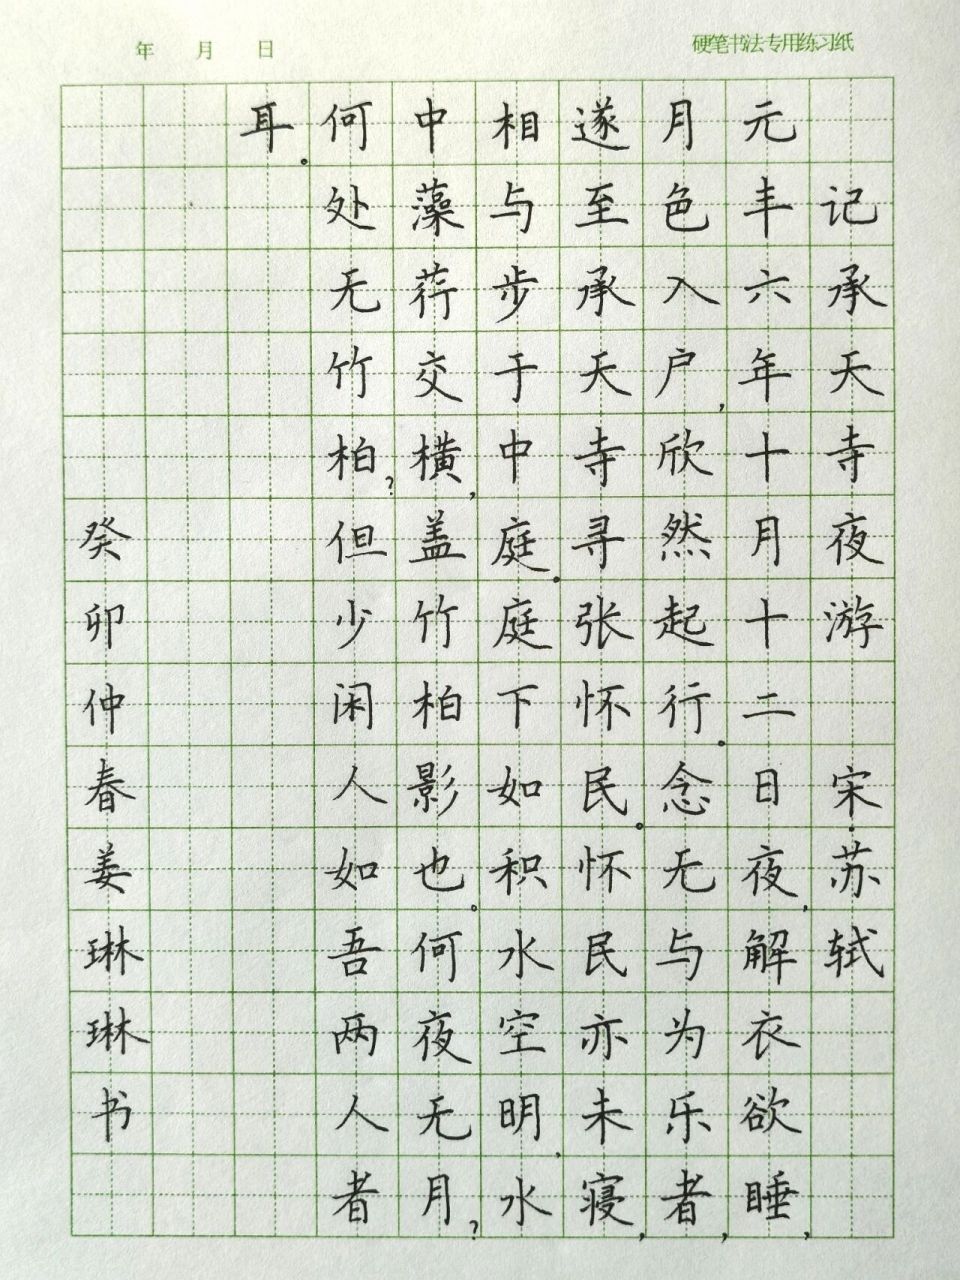 年 月 日
硬笔书法专用练习纸
记承天寺夜游 宋·苏轼
元丰六年十月十二日夜,解衣欲睡,
月色入户,欣然起行。念无与为乐者,
遂至承天寺寻张怀民。怀民亦未寝,
相与步于中庭。庭下如积水空明,水
中藻荇交横,盖竹柏影也。何夜无月?
何处无竹柏?但少闲人如吾两人者
耳。
癸卯仲春姜琳琳书